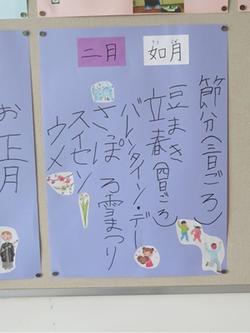 二月
如月
節分(三日ごろ)
豆まき
立春(四日ごろ)
バレンタイン・デー
さっぽろ雪まつり
スイセン
ウメ
お正月